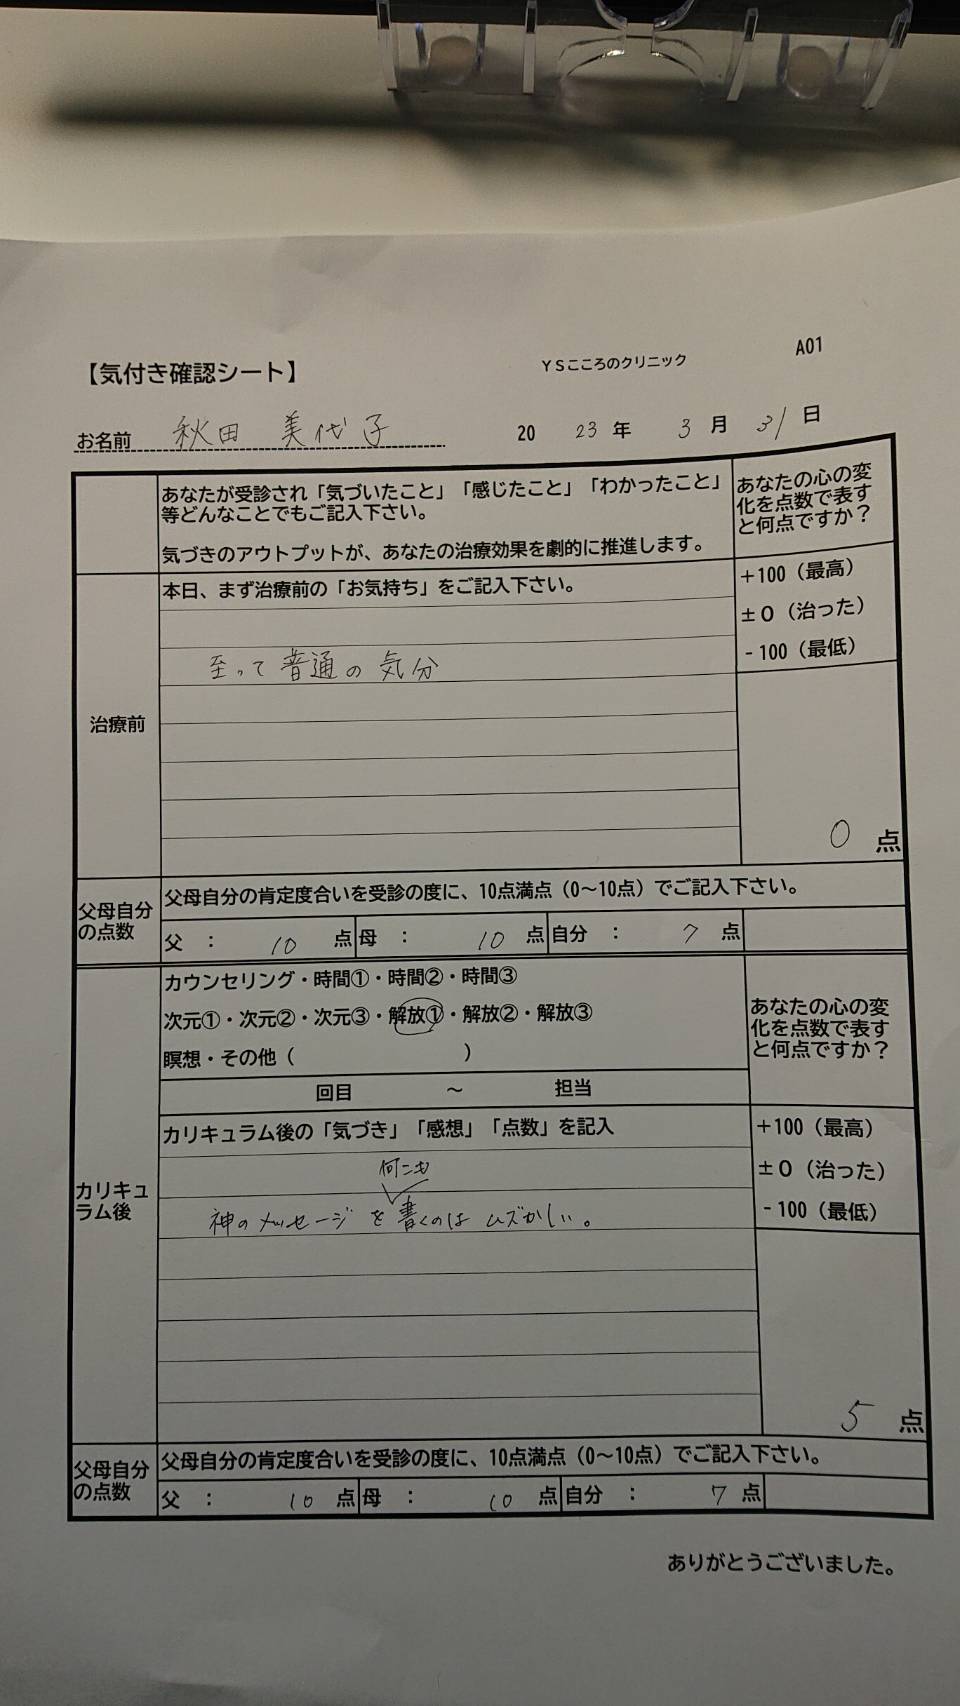 【気付き確認シート】 YSこころのクリニック A01
お名前 秋田 美代子 2023年 3月 31日
あなたが受診され「気づいたこと」「感じたこと」「わかったこと」
等どんなことでもご記入下さい。
気づきのアウトプットが、あなたの治療効果を劇的に推進します。
あなたの心の変
化を点数で表す
と何点ですか？
治療前
本日、まず治療前の「お気持ち」をご記入下さい。
至って普通の気分
+100（最高）
±0（治った）
-100（最低）
0 点
父母自分
の点数
父母自分の肯定度合いを受診の度に、10点満点（0〜10点）でご記入下さい。
父 ： 10 点 母 ： 10 点 自分 ： 7 点
カリキュ
ラム後
カウンセリング・時間①・時間②・時間③
次元①・次元②・次元③・解放①・解放②・解放③
瞑想・その他（ ）
回目 〜 担当
あなたの心の変
化を点数で表す
と何点ですか？
カリキュラム後の「気づき」「感想」「点数」を記入
神のメッセージを書くのはムズかしい。
+100（最高）
±0（治った）
-100（最低）
5 点
父母自分
の点数
父母自分の肯定度合いを受診の度に、10点満点（0〜10点）でご記入下さい。
父 ： 10 点 母 ： 10 点 自分 ： 7 点
ありがとうございました。